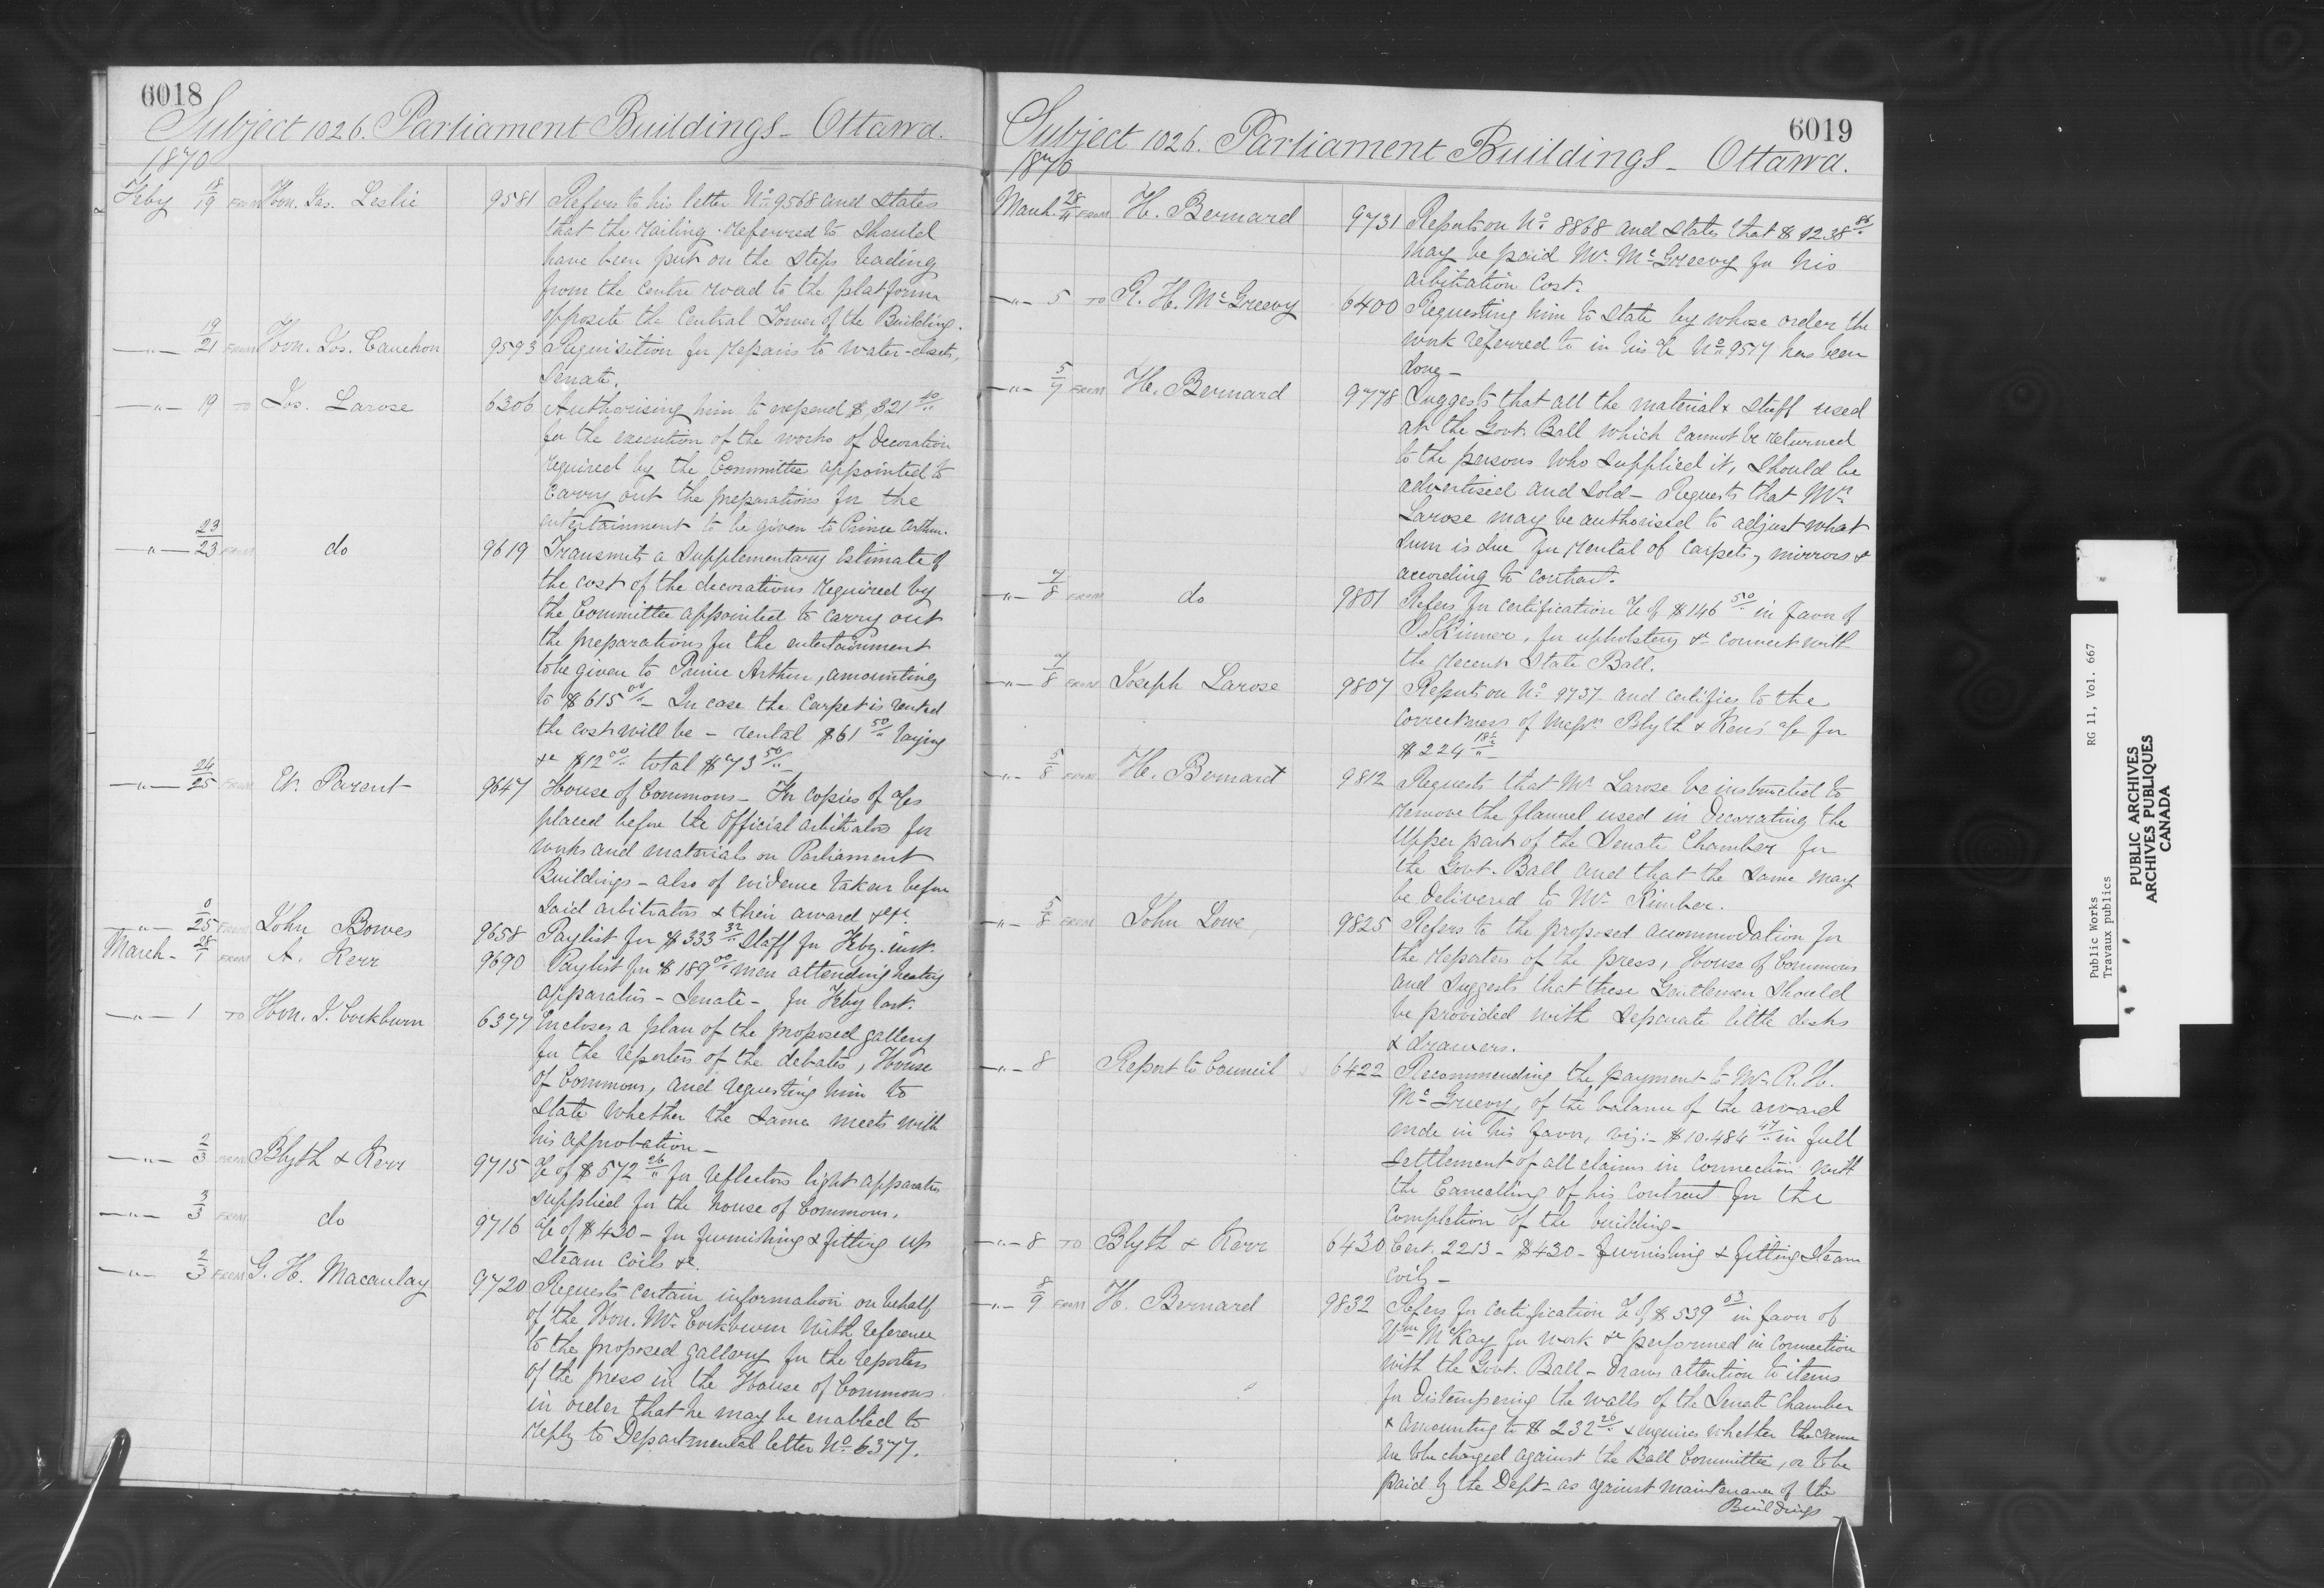 6018
Subject 1026. Parliament Buildings - Ottawa.
1870
Feby 18/19 FROM Hon. Jas. Leslie 9581 Refers to his letter No 9568 and states
that the railing referred to should
have been put on the steps leading
from the centre road to the platform
opposite the Central Tower of the Building.
—"— 19/21 FROM Hon. Jos. Cauchon 9593 Requisition for repairs to water-closets,
Senate.
—"— 19 TO Jos. Larose 6306 Authorising him to expend $321 40/"
for the execution of the works of decoration
required by the Committee appointed to
carry out the preparations for the
entertainment to be given to Prince Arthur.
—"— 23/23 FROM do 9619 Transmits a supplementary Estimate of
the cost of the decorations required by
the Committee appointed to carry out
the preparations for the entertainment
to be given to Prince Arthur, amounting
to $615 00/" - In case the Carpet is rented
the cost will be - rental $61 50/" laying
&c $12 00/" total $73 50/" -
—"— 24/25 FROM Et. Parent 9647 House of Commons - For copies of a/cs
placed before the Official Arbitrators for
works and materials on Parliament
Buildings - also of evidence taken before
said arbitrators & their award &c &c.
—"— 0/25 FROM John Bowes 9658 Paylist for $333 32/" Staff for Feby. inst.
March - 28/1 FROM A. Kerr 9690 Paylist for $189 00/" men attending heating
apparatus - Senate - for Feby last.
—"— 1 TO Hon. J. Cockburn 6377 Encloses a plan of the proposed gallery
for the reporters of the debates, House
of Commons, and requesting him to
state whether the same meets with
his approbation -
—"— 2/3 FROM Blyth & Kerr 9715 a/c of $572 26/" for reflectors light apparatus
supplied for the house of Commons.
—"— 3/3 FROM do 9716 a/c of $430 - for furnishing & fitting up
steam coils &c.
—"— 2/3 FROM G. H. Macaulay 9720 Requests certain information on behalf
of the Hon. Mr Cockburn with reference
to the proposed gallery for the reporters
of the press in the House of Commons
in order that he may be enabled to
reply to Departmental letter No 6377.
6019
Subject 1026. Parliament Buildings - Ottawa.
1870
March 28/4 FROM H. Bernard 9731 Reports on No 8868 and states that $1238 86/"
may be paid Mr. McGreevy for his
arbitration Cost.
—"— 5 TO R. H. McGreevy 6400 Requesting him to state by whose order the
work referred to in his a/c No 9517 has been
done -
—"— 5/7 FROM H. Bernard 9778 Suggests that all the material & stuff used
at the Govt. Ball which cannot be returned
to the persons who supplied it, should be
advertised and sold - Requests that Mr.
Larose may be authorised to adjust what
sum is due for rental of carpets, mirrors &
according to contract.
—"— 7/8 FROM do 9801 Refers for certification a/c of $146 50/" in favor of
Skinner, for upholstery &c connect with
the recent State Ball.
—"— 7/8 FROM Joseph Larose 9807 Reports on No 9737 and certifies to the
correctness of Messrs Blyth & Kerr's a/c for
$224 18½/"
—"— 5/8 FROM H. Bernard 9812 Requests that Mr Larose be instructed to
remove the flannel used in Decorating the
Upper part of the Senate Chamber for
the Govt. Ball and that the same may
be delivered to Mr. Kimber.
—"— 5/8 FROM John Lowe 9825 Refers to the proposed accommodation for
the reporters of the press, House of Commons
and suggests that these Gentlemen should
be provided with separate little desks
& drawers.
—"— 8 Report to Council 6422 Recommending the payment to Mr. R. H.
McGreevy, of the balance of the award
made in his favor, viz:- $10.484 47/" in full
settlement of all claims in connection with
the Cancelling of his Contract for the
Completion of the building -
—"— 8 TO Blyth & Kerr 6430 Cert. 2213 - $430 - furnishing & fitting Steam
coils -
—"— 8/9 FROM H. Bernard 9832 Refers for certification a/c of $539 03/" in favor of
Wm McKay for work &c performed in connection
with the Govt. Ball - Draws attention to items
for Distempering the walls of the Senate Chamber
& amounting to $232 20/" & enquires whether the same
are to be charged against the Ball Committee, or to be
paid by the Dept - as against maintenance of the
Buildings
Public Works RG 11, Vol. 667
Travaux publics
PUBLIC ARCHIVES
ARCHIVES PUBLIQUES
CANADA